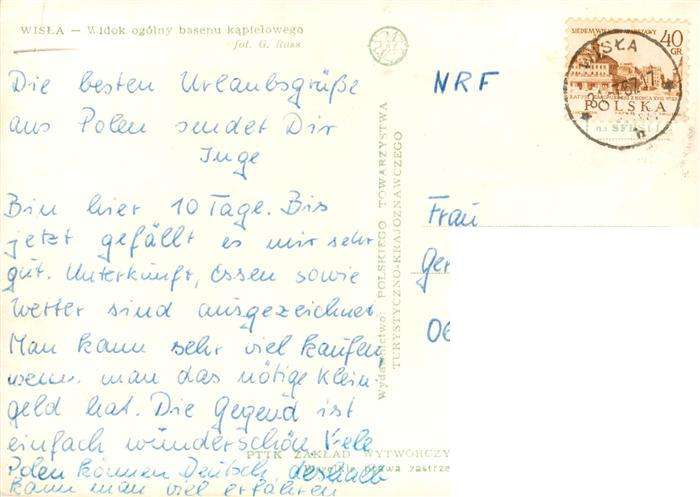 WISŁA — Widok ogólny basenu kąpielowego
fot. G. Russ
Die besten Urlaubsgrüße
aus Polen sendet Dir
Inge
Bin hier 10 Tage. Bis
jetzt gefällt es mir sehr
gut. Unterkunft, Essen sowie
Wetter sind ausgezeichnet
Man kann sehr viel kaufen
wenn man das nötige Klein-
geld hat. Die Gegend ist
einfach wunderschön Viele
Polen können Deutsch deshalb
kann man viel erfahren
Wydawnictwo: POLSKIEGO TOWARZYSTWA
TURYSTYCZNO-KRAJOZNAWCZEGO
PTTK ZAKŁAD WYTWÓRCZY
prawa zastrze
NRF
SIEDEM WIEKÓW WARSZAWY
40
GR
POLSKA
WISŁA
Frau
Ger
06